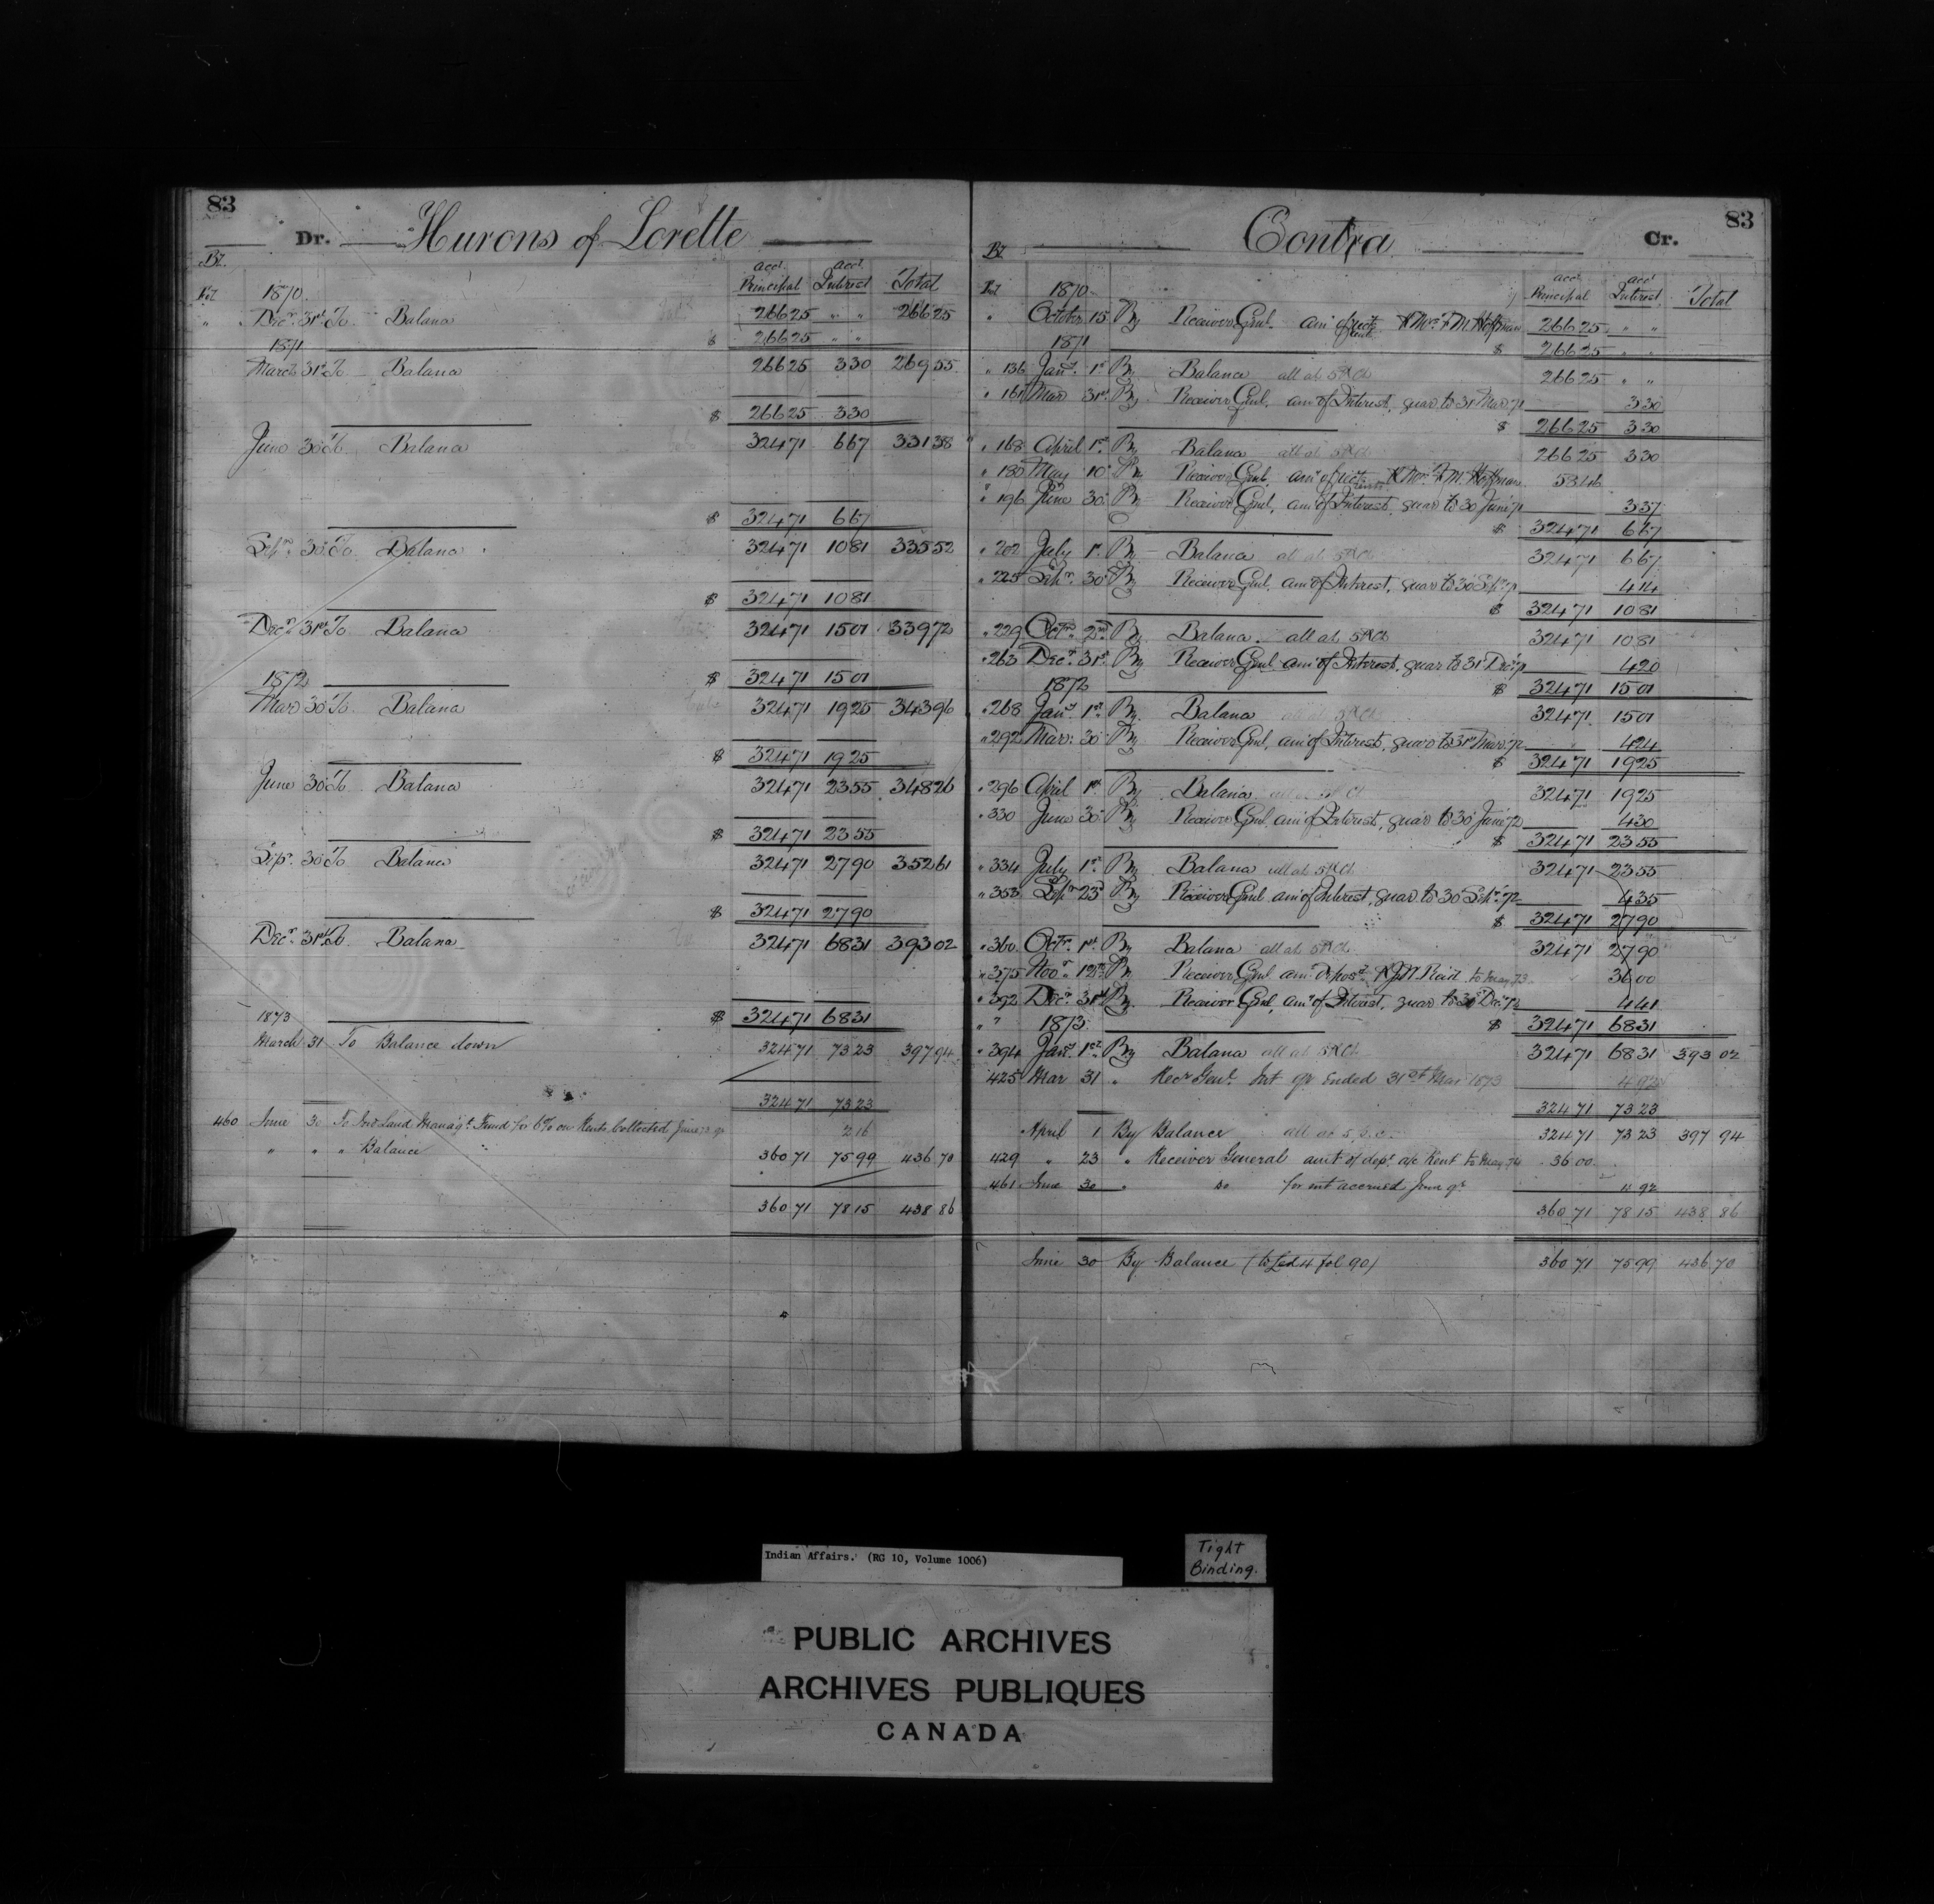 83
Dr. Hurons of Lorette
Bt.
Fol. 1870 acct. Principal acct. Interest Total
" Decr. 31st To Balance 266 25 " " 266 25
1871 $ 266 25 " "
March 31st To Balance 266 25 3 30 269 55
$ 266 25 3 30
June 30 To Balance 324 71 6 67 331 38
$ 324 71 6 67
Sepr. 30 To Balance 324 71 10 81 335 52
$ 324 71 10 81
Decr. 31st To Balance 324 71 15 01 339 72
1872 $ 324 71 15 01
Mar 30 To Balance 324 71 19 25 343 96
$ 324 71 19 25
June 30 To Balance 324 71 23 55 348 26
$ 324 71 23 55
Sepr. 30 To Balance 324 71 27 90 352 61
$ 324 71 27 90
Decr. 31st To Balance 324 71 68 31 393 02
1873 $ 324 71 68 31
March 31 To Balance down 324 71 73 23 397 94
324 71 73 23
460 June 30 To Ind Land Managt. Fund for 6% on Rents Collected June qr 2 16
" " " Balance 360 71 75 99 436 70
360 71 78 15 438 86
83
Contra Cr.
Bt.
Fol. 1870 acct. Principal acct. Interest Total
" October 15 By Receiver Genl. amt of F M Hoffman 266 25 " "
1871 $ 266 25 " "
" 136 Jany. 1st By Balance all at 5 P Ct 266 25 " "
" 161 Mar 31st By Receiver Genl. amt of Interest, quar to 31 Mar 71 3 30
$ 266 25 3 30
" 168 April 1st By Balance all at 5 P Ct 266 25 3 30
" 180 May 10 By Receiver Genl. amt of F M Hoffman 58 46
" 196 June 30 By Receiver Genl, amt of Interest, quar to 30 June 71 3 37
$ 324 71 6 67
" 202 July 1st By Balance all at 5 P Ct 324 71 6 67
" 225 Sepr. 30 By Receiver Genl. amt of Interest, quar to 30 Sepr. 71 4 14
$ 324 71 10 81
" 229 Octr. 2nd By Balance all at 5 P Ct 324 71 10 81
" 263 Decr. 31st By Receiver Genl. amt of Interest, quar to 31 Decr. 71 4 20
1872 $ 324 71 15 01
" 268 Jany. 1st By Balance all at 5 P Ct 324 71 15 01
" 292 Mar. 30 By Receiver Genl, amt of Interest, quar to 31st Mar. 72 4 24
$ 324 71 19 25
" 296 April 1st By Balance all at 5 P Ct 324 71 19 25
" 330 June 30 By Receiver Genl. amt of Interest, quar to 30 June 72 4 30
$ 324 71 23 55
" 334 July 1st By Balance all at 5 P Ct 324 71 23 55
" 353 Sepr 23d By Receiver Genl amt of Interest, quar to 30 Sepr. 72 4 35
$ 324 71 27 90
" 360 Octr. 1st By Balance all at 5 P Ct 324 71 27 90
" 375 Novr. 12th By Receiver Genl amt. Deposd. Reid to May 73 36 00
" 392 Decr 31st By Receiver Genl, amt of Interest, quar to 30 Decr 72 4 41
" " 1873 $ 324 71 68 31
" 394 Jany. 1st By Balance all at 5 P Ct 324 71 68 31 393 02
425 Mar 31 " Recr Genl. Int qr Ended 31st Mar 1873 4 92
324 71 73 23
April 1 By Balance all at 5 p.c. 324 71 73 23 397 94
429 " 23 " Receiver General amt of dept. a/c Rent to May 74 36 00
461 June 30 " do for int accrued June qr 4 92
360 71 78 15 438 86
June 30 By Balance (to Led 4 fol 90) 360 71 75 99 436 70
Indian Affairs. (RG 10, Volume 1006)
Tight
Binding.
PUBLIC ARCHIVES
ARCHIVES PUBLIQUES
CANADA